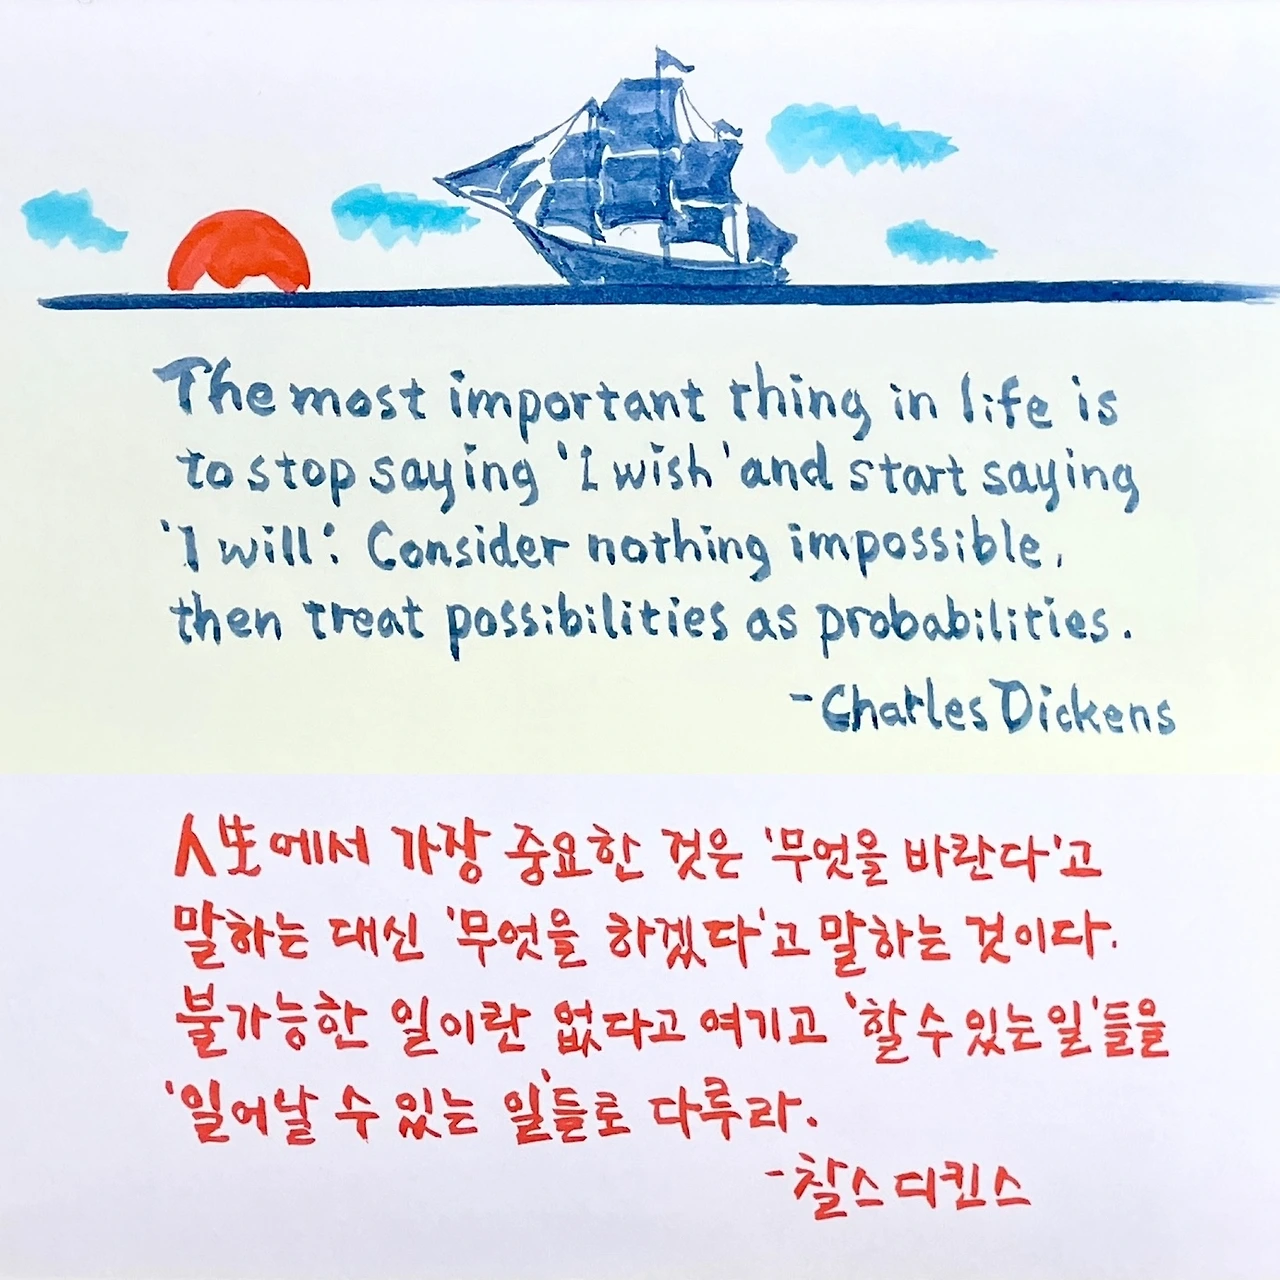 The most important thing in life is
to stop saying 'I wish' and start saying
'I will'. Consider nothing impossible,
then treat possibilities as probabilities.
-Charles Dickens
人生에서 가장 중요한 것은 '무엇을 바란다'고
말하는 대신 '무엇을 하겠다'고 말하는 것이다.
불가능한 일이란 없다고 여기고 '할 수 있는 일'들을
'일어날 수 있는 일'들로 다루라.
-찰스 디킨스